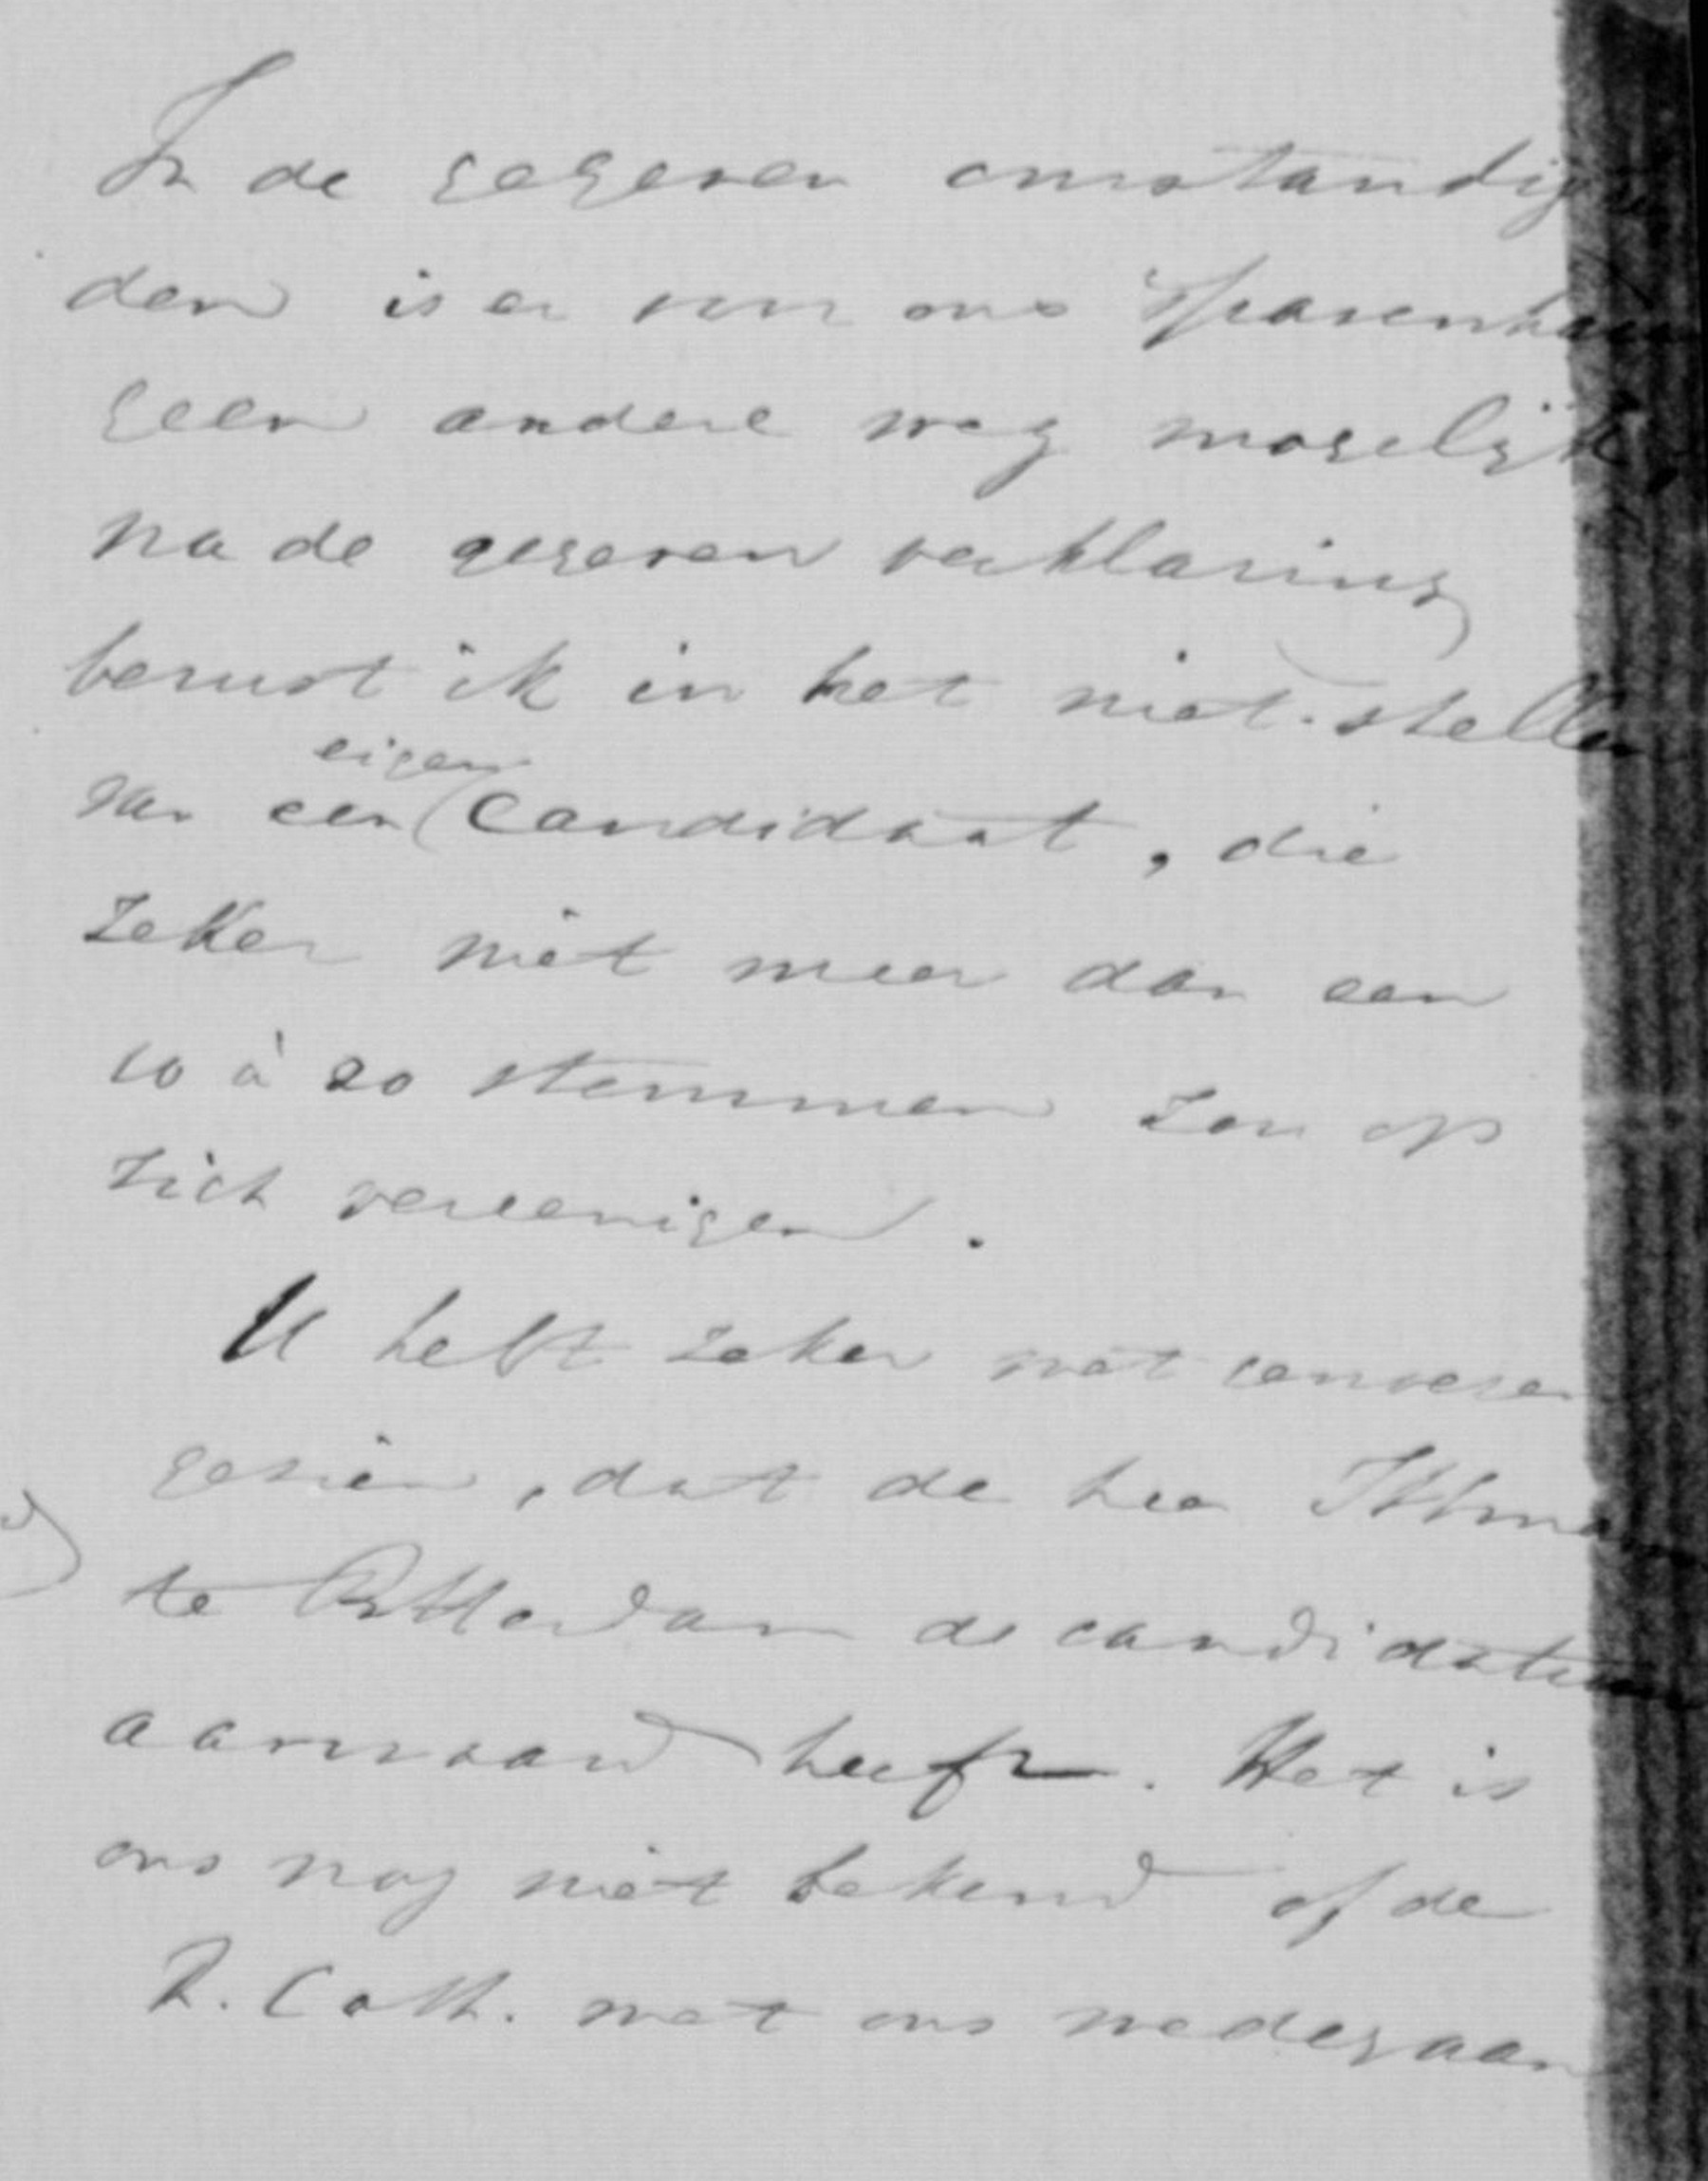 In de gegeven omstandig
den is er voor ons
geen andere weg mogelijk,
na de gegeven verklaring
berust ik in het niet-stellen
eigen
van een candidaat, die
zeker niet meer dan een
10 à 20 stemmen zou op
zich vereenigen.
U hebt zeker met genoegen
gezien, dat de heer
te Rotterdam de candidatuur
aanvaard heeft. Het is
ons nog niet bekend of de
R. Cath. met ons medegaan